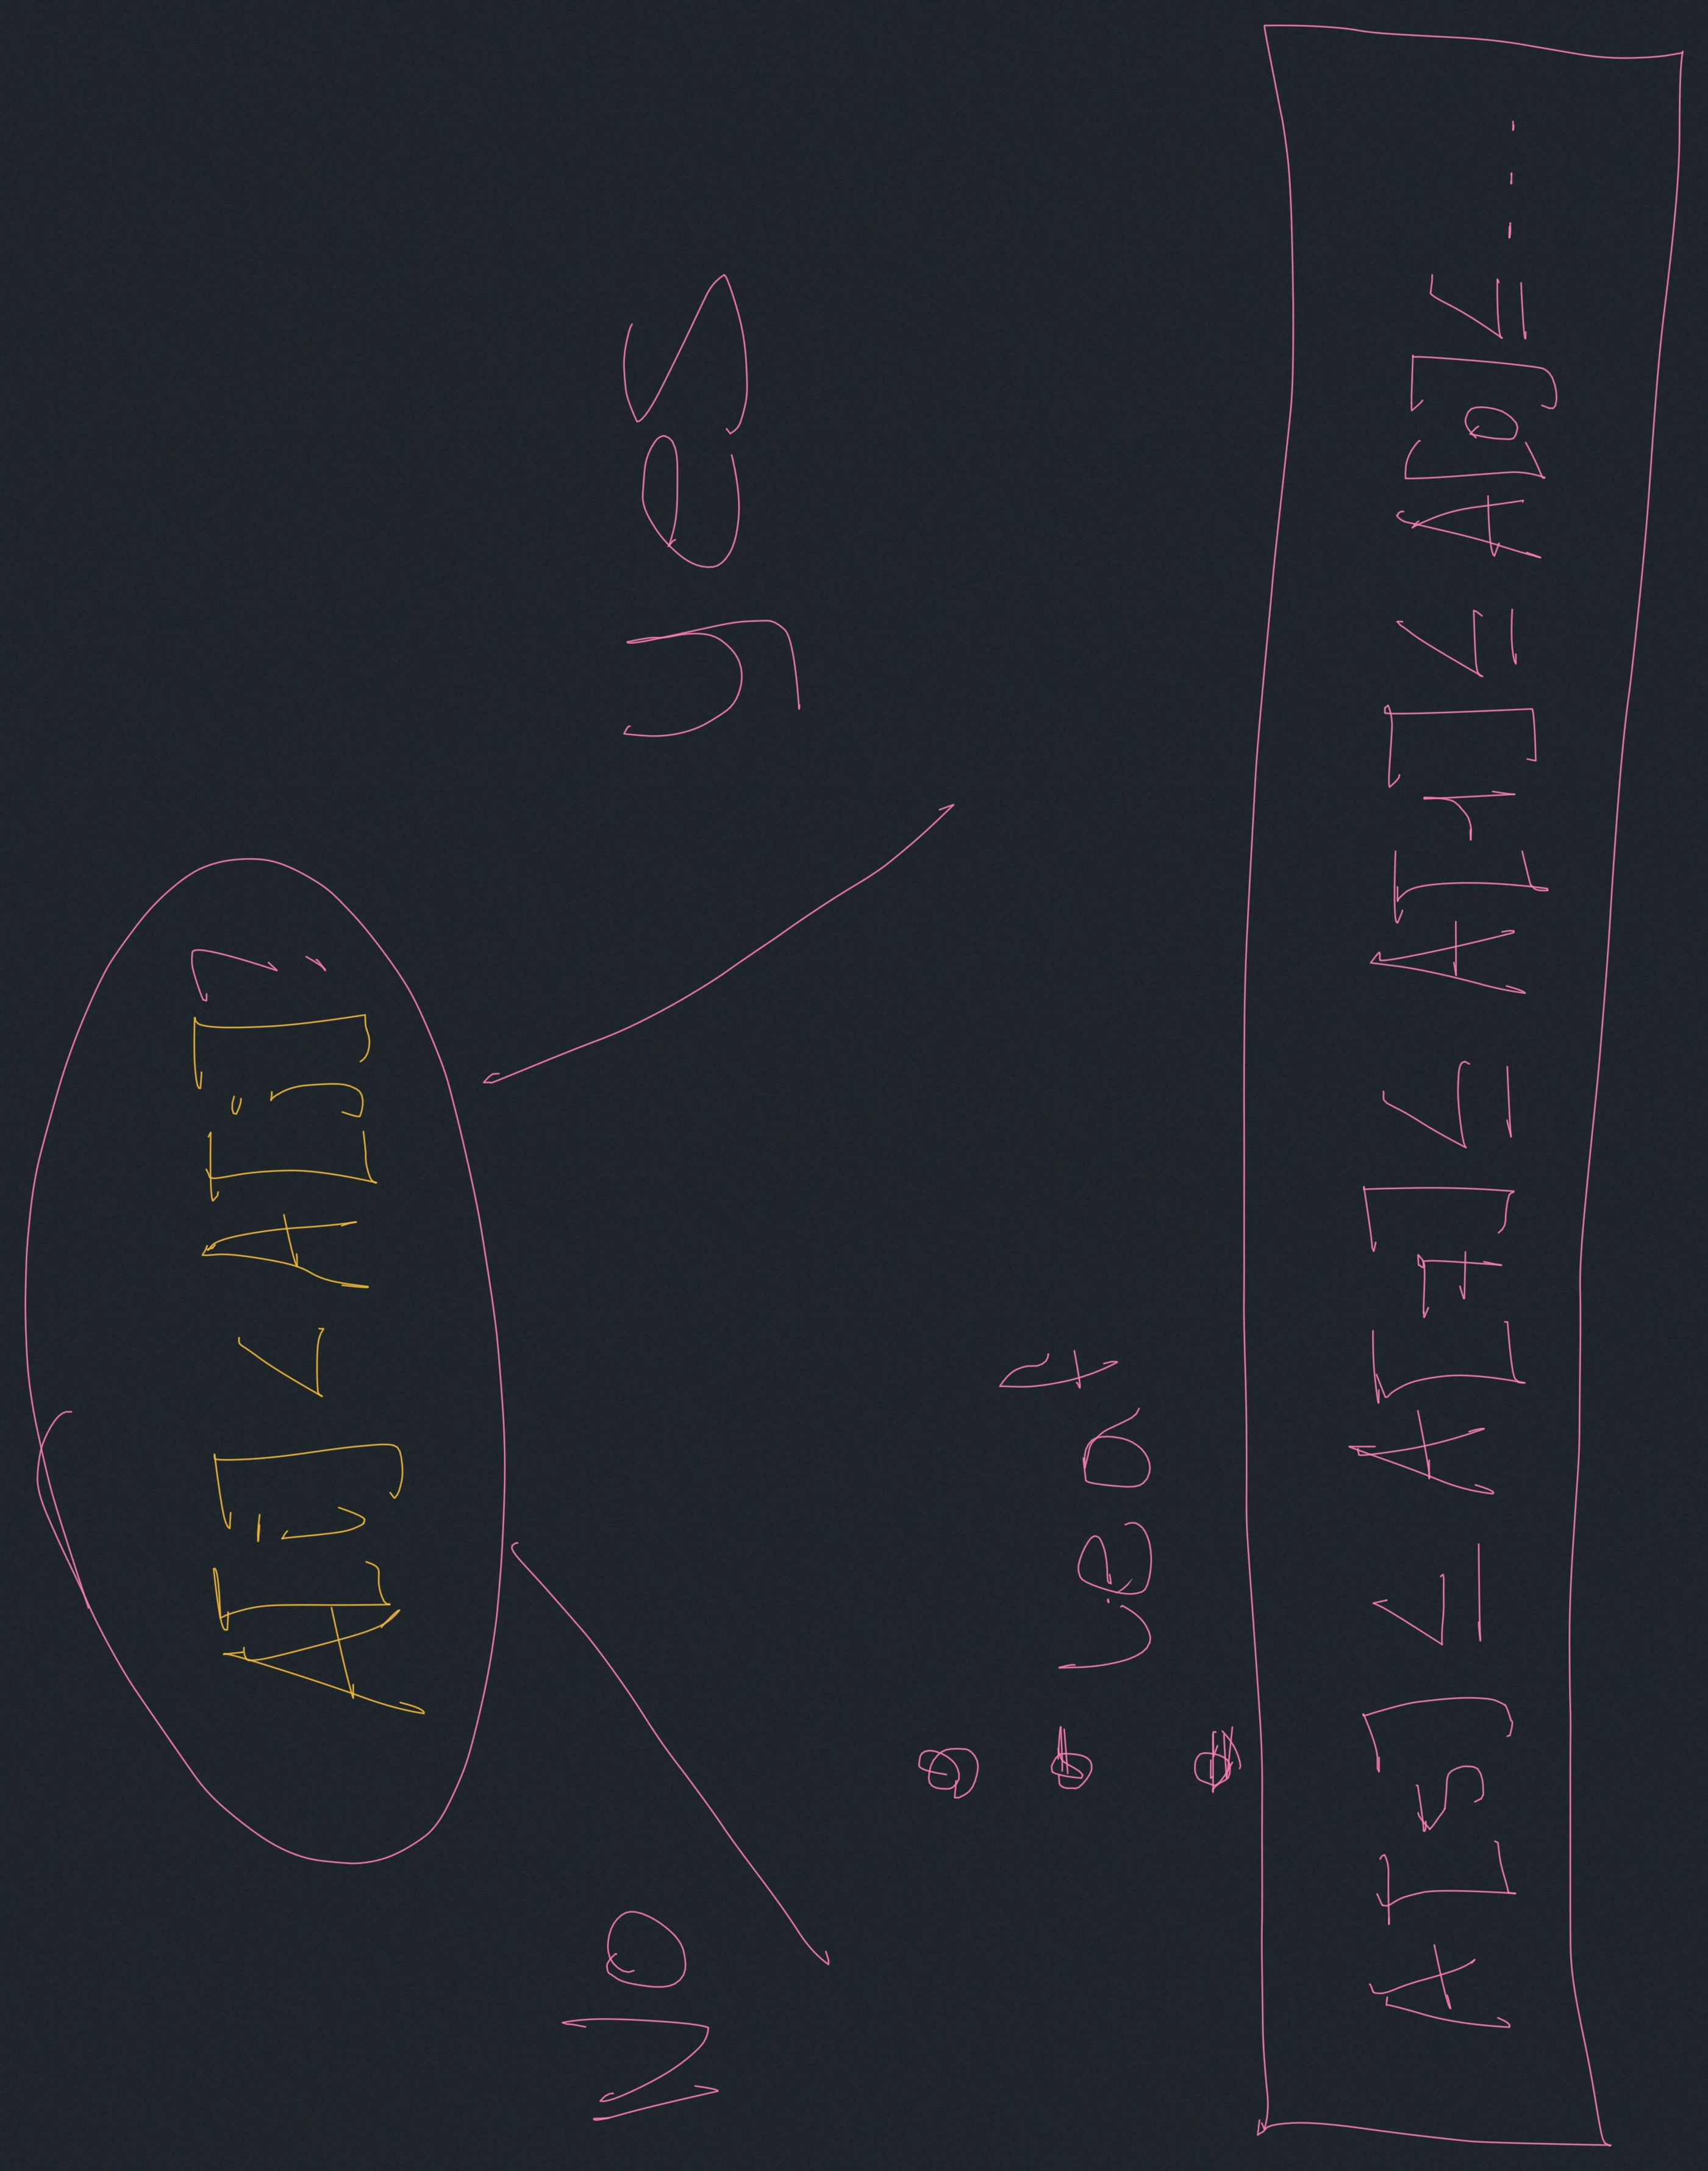 A[i] < A[j]?
No
yes
leaf
A[5] ≤ A[7] ≤ A[1] ≤ A[0] ≤ - - -